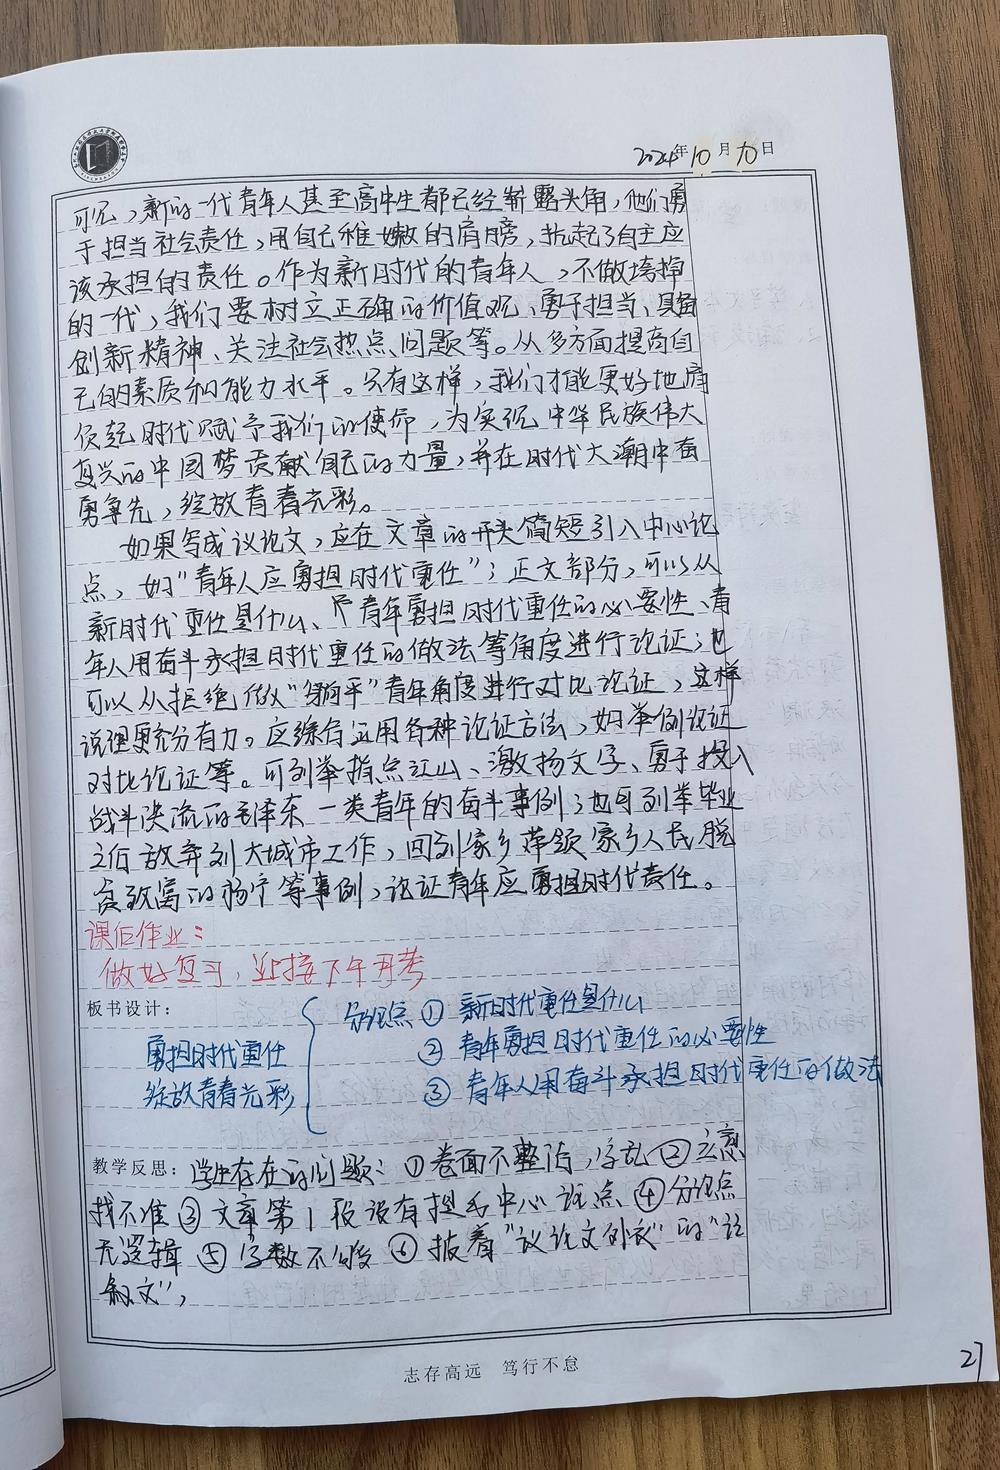 2024年10月10日
可见，新的一代青年人甚至高中生都已经崭露头角，他们勇
于担当社会责任，用自己稚嫩的肩膀，抗起了自主应
该承担的责任。作为新时代的青年人，不做垮掉
的一代，我们要树立正确的价值观、勇于担当、具备
创新精神、关注社会热点、问题等。从多方面提高自
己的素质和能力水平。只有这样，我们才能更好地肩
负起时代赋予我们的使命，为实现中华民族伟大
复兴的中国梦贡献自己的力量，并在时代大潮中奋
勇争先，绽放青春光彩。
如果写成议论文，应在文章的开头简短引入中心论
点，如"青年人应勇担时代重任"；正文部分，可以从
新时代重任是什么、青年勇担时代重任的必要性、青
年人用奋斗承担时代重任的做法等角度进行论证；也
可以从拒绝做"躺平"青年角度进行对比论证，这样
说理更充分有力。应综合运用各种论证方法，如举例论证
对比论证等。可列举指点江山、激扬文字、勇于投入
战斗决流的毛泽东一类青年的奋斗事例；也可列举毕业
之后放弃到大城市工作，回到家乡带领家乡人民脱
贫致富的杨宁等事例，论证青年应勇担时代责任。
课后作业：
做好复习，迎接下午月考
板书设计：
勇担时代重任
绽放青春光彩
分论点 ① 新时代重任是什么
② 青年勇担时代重任的必要性
③ 青年人用奋斗承担时代重任的做法
教学反思：学生存在的问题：①卷面不整洁，字乱 ②立意
找不准 ③文章第1段没有提出中心论点 ④分论点
无逻辑 ⑤字数不够 ⑥披着"议论文外衣"的"记
叙文"，
志存高远 笃行不怠
27